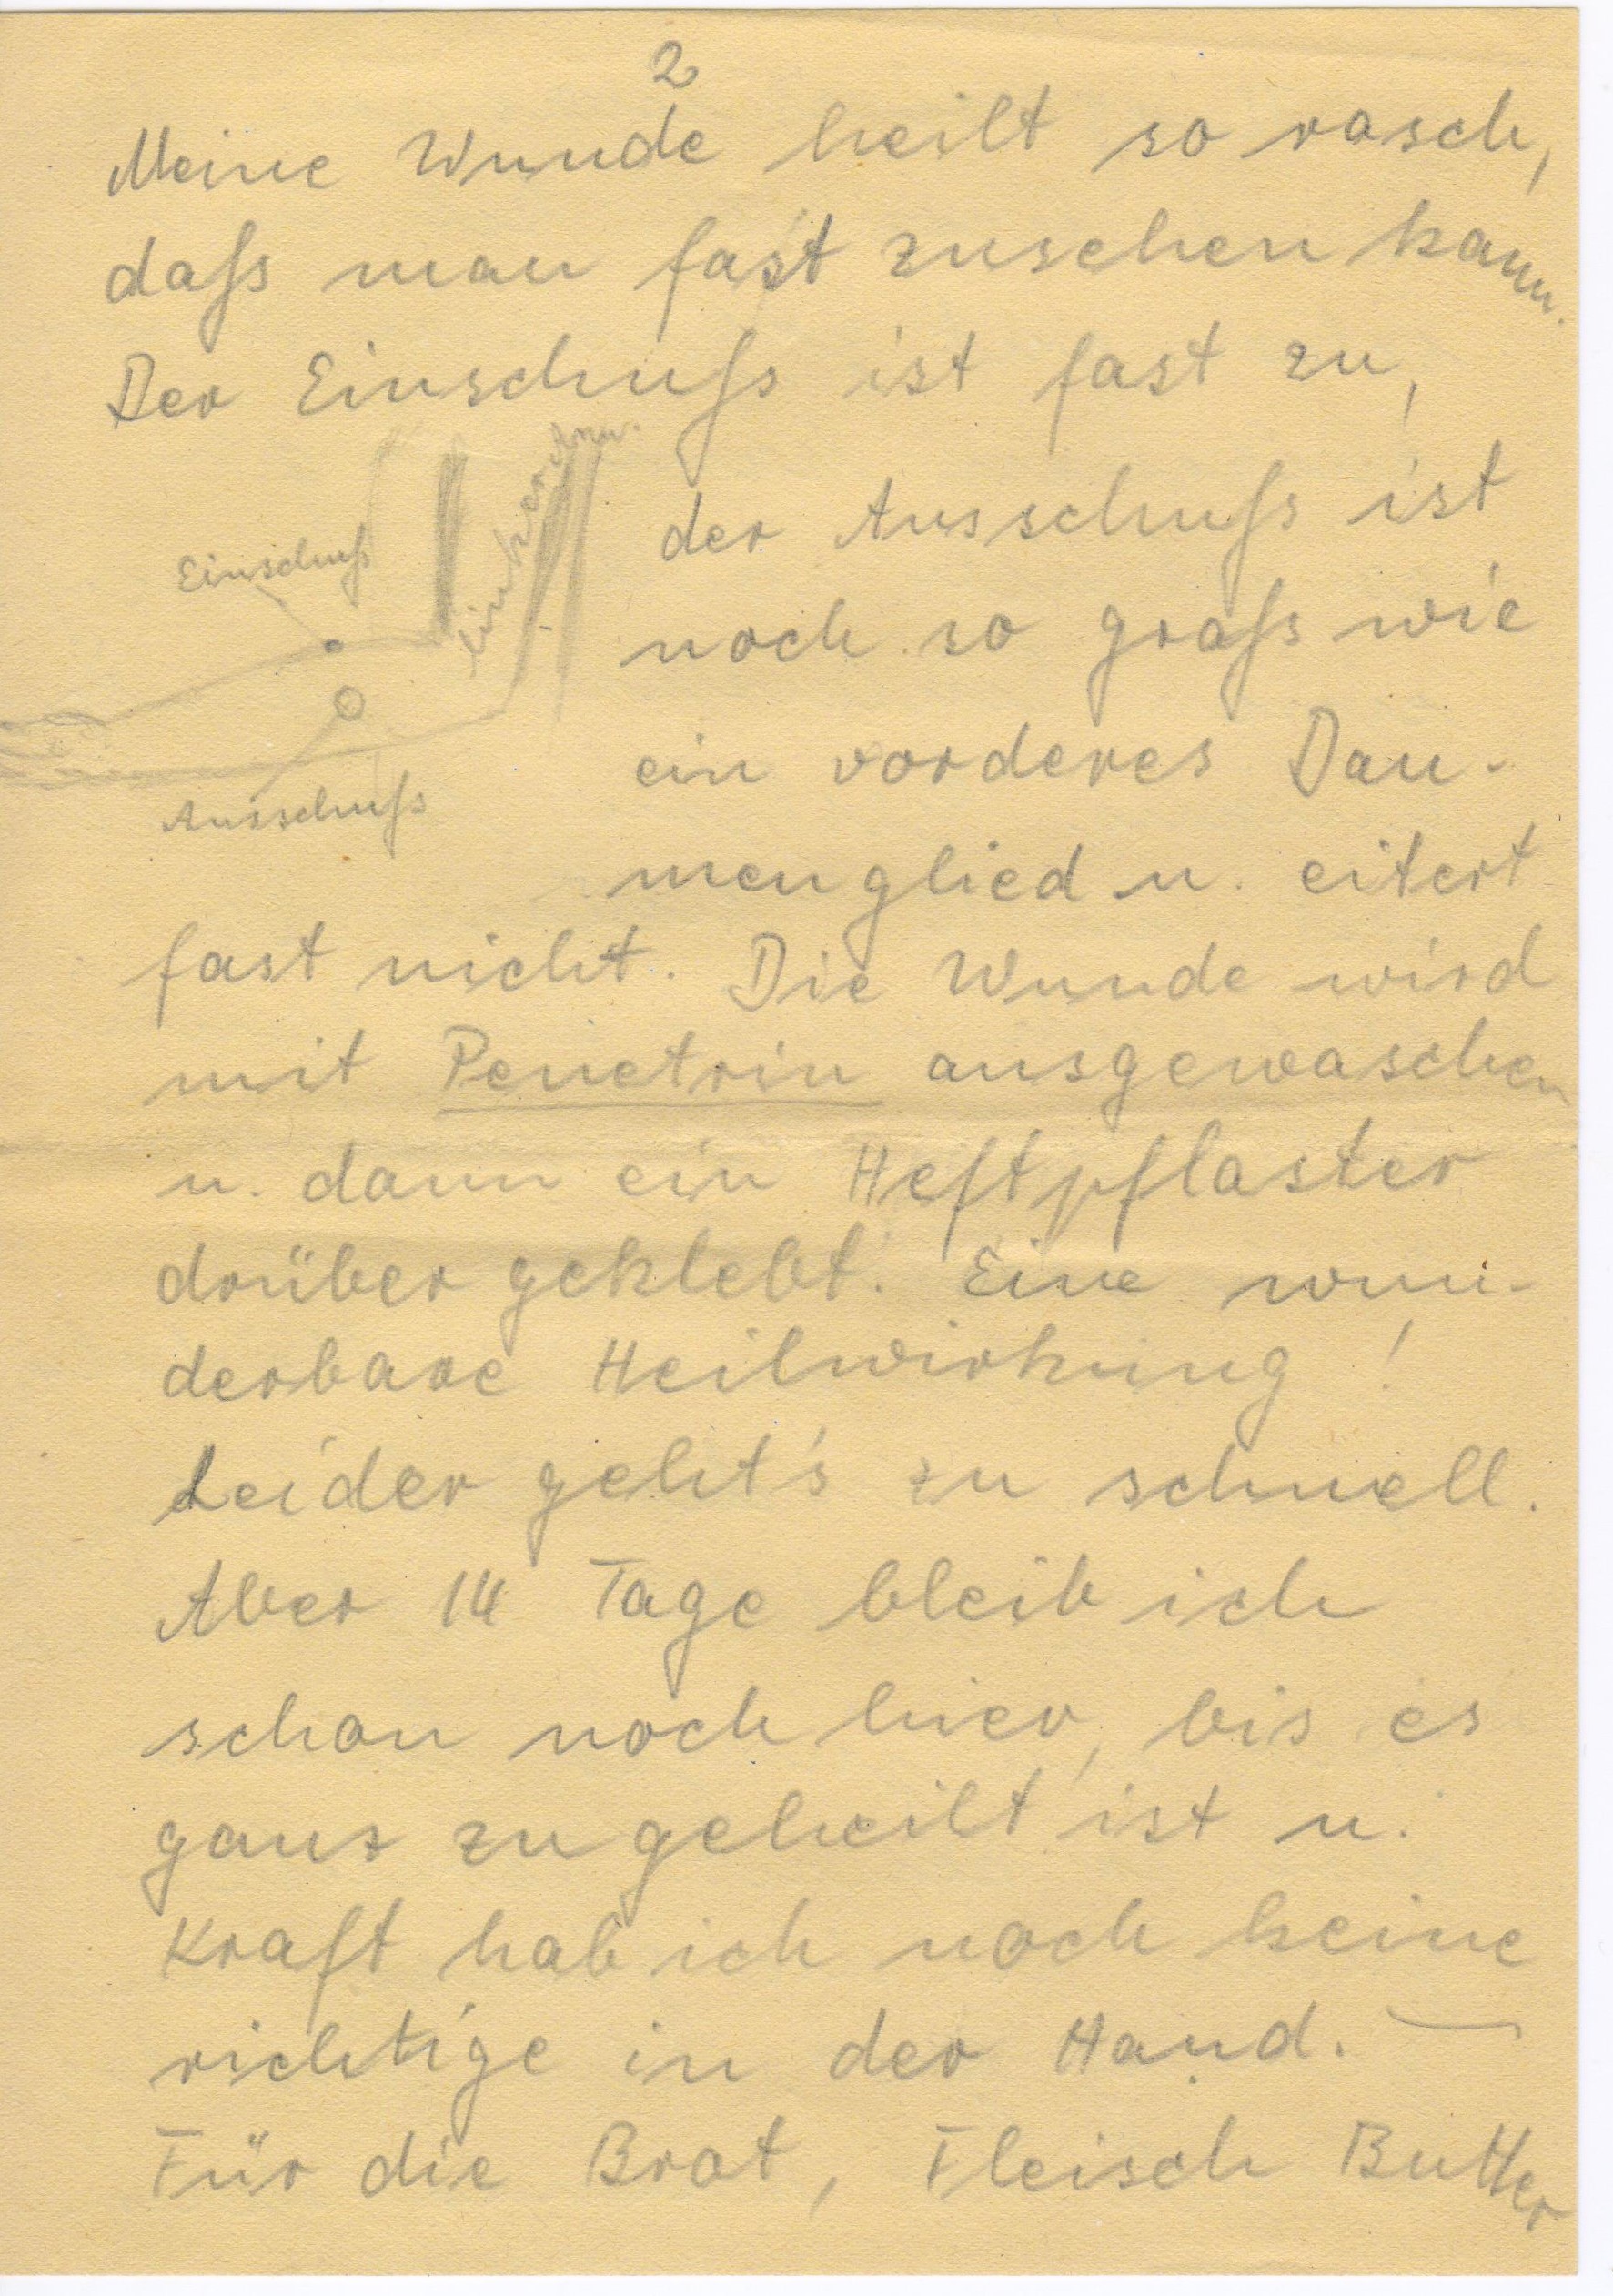 2
Meine Wunde heilt so rasch,
daß man fast zusehen kann.
Der Einschuß ist fast zu,
der Ausschuß ist
noch so groß wie
ein vorderes Dau-
menglied u. eitert
Einschuß
linker Arm.
Ausschuß
fast nicht. Die Wunde wird
mit Penetrin ausgewaschen
u. dann ein Heftpflaster
drüber geklebt. Eine wun-
derbare Heilwirkung!
Leider geht's zu schnell.
Aber 14 Tage bleib ich
schon noch hier, bis es
ganz zu geheilt ist u.
Kraft hab ich noch keine
richtige in der Hand. —
Für die Brot, Fleisch Butter